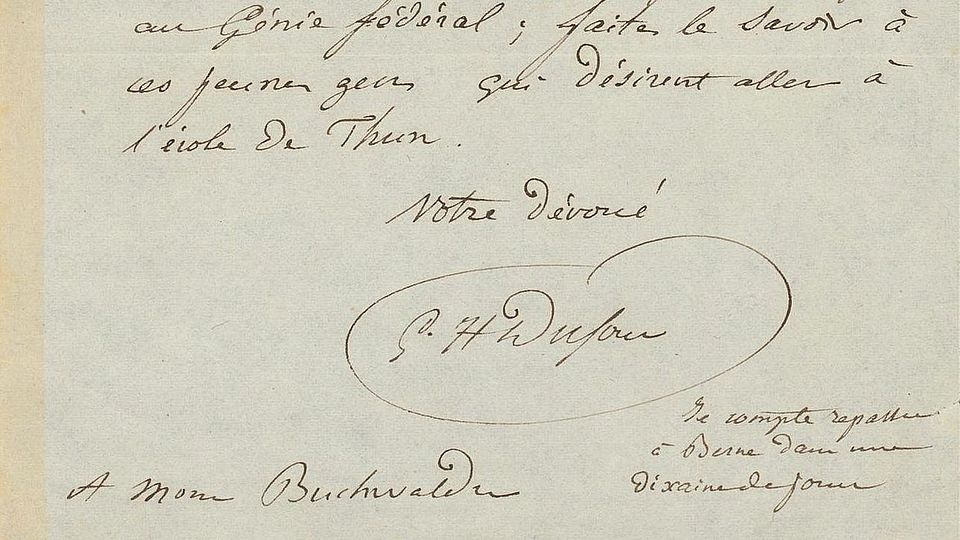 au Génie fédéral ; faites le savoir à
ces jeunes gens qui désirent aller à
l'école de Thun.
Votre dévoué
G. H Dufour
Je compte repasser
à Berne dans une
dixaine de jours
A Monr Buchwalder